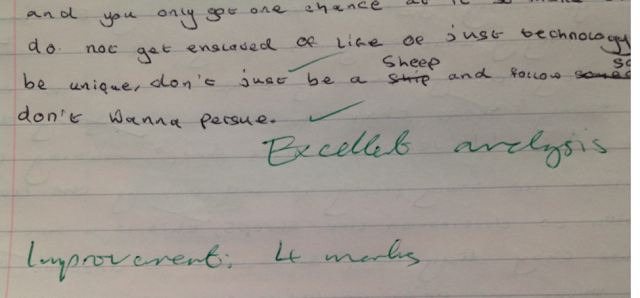 and you only got one chance at it so make
do. not get enslaved of life or just technology
be unique, don't just be a ship sheep and follow
don't wanna persue.
Excellet analysis
Improvement: 4 marks